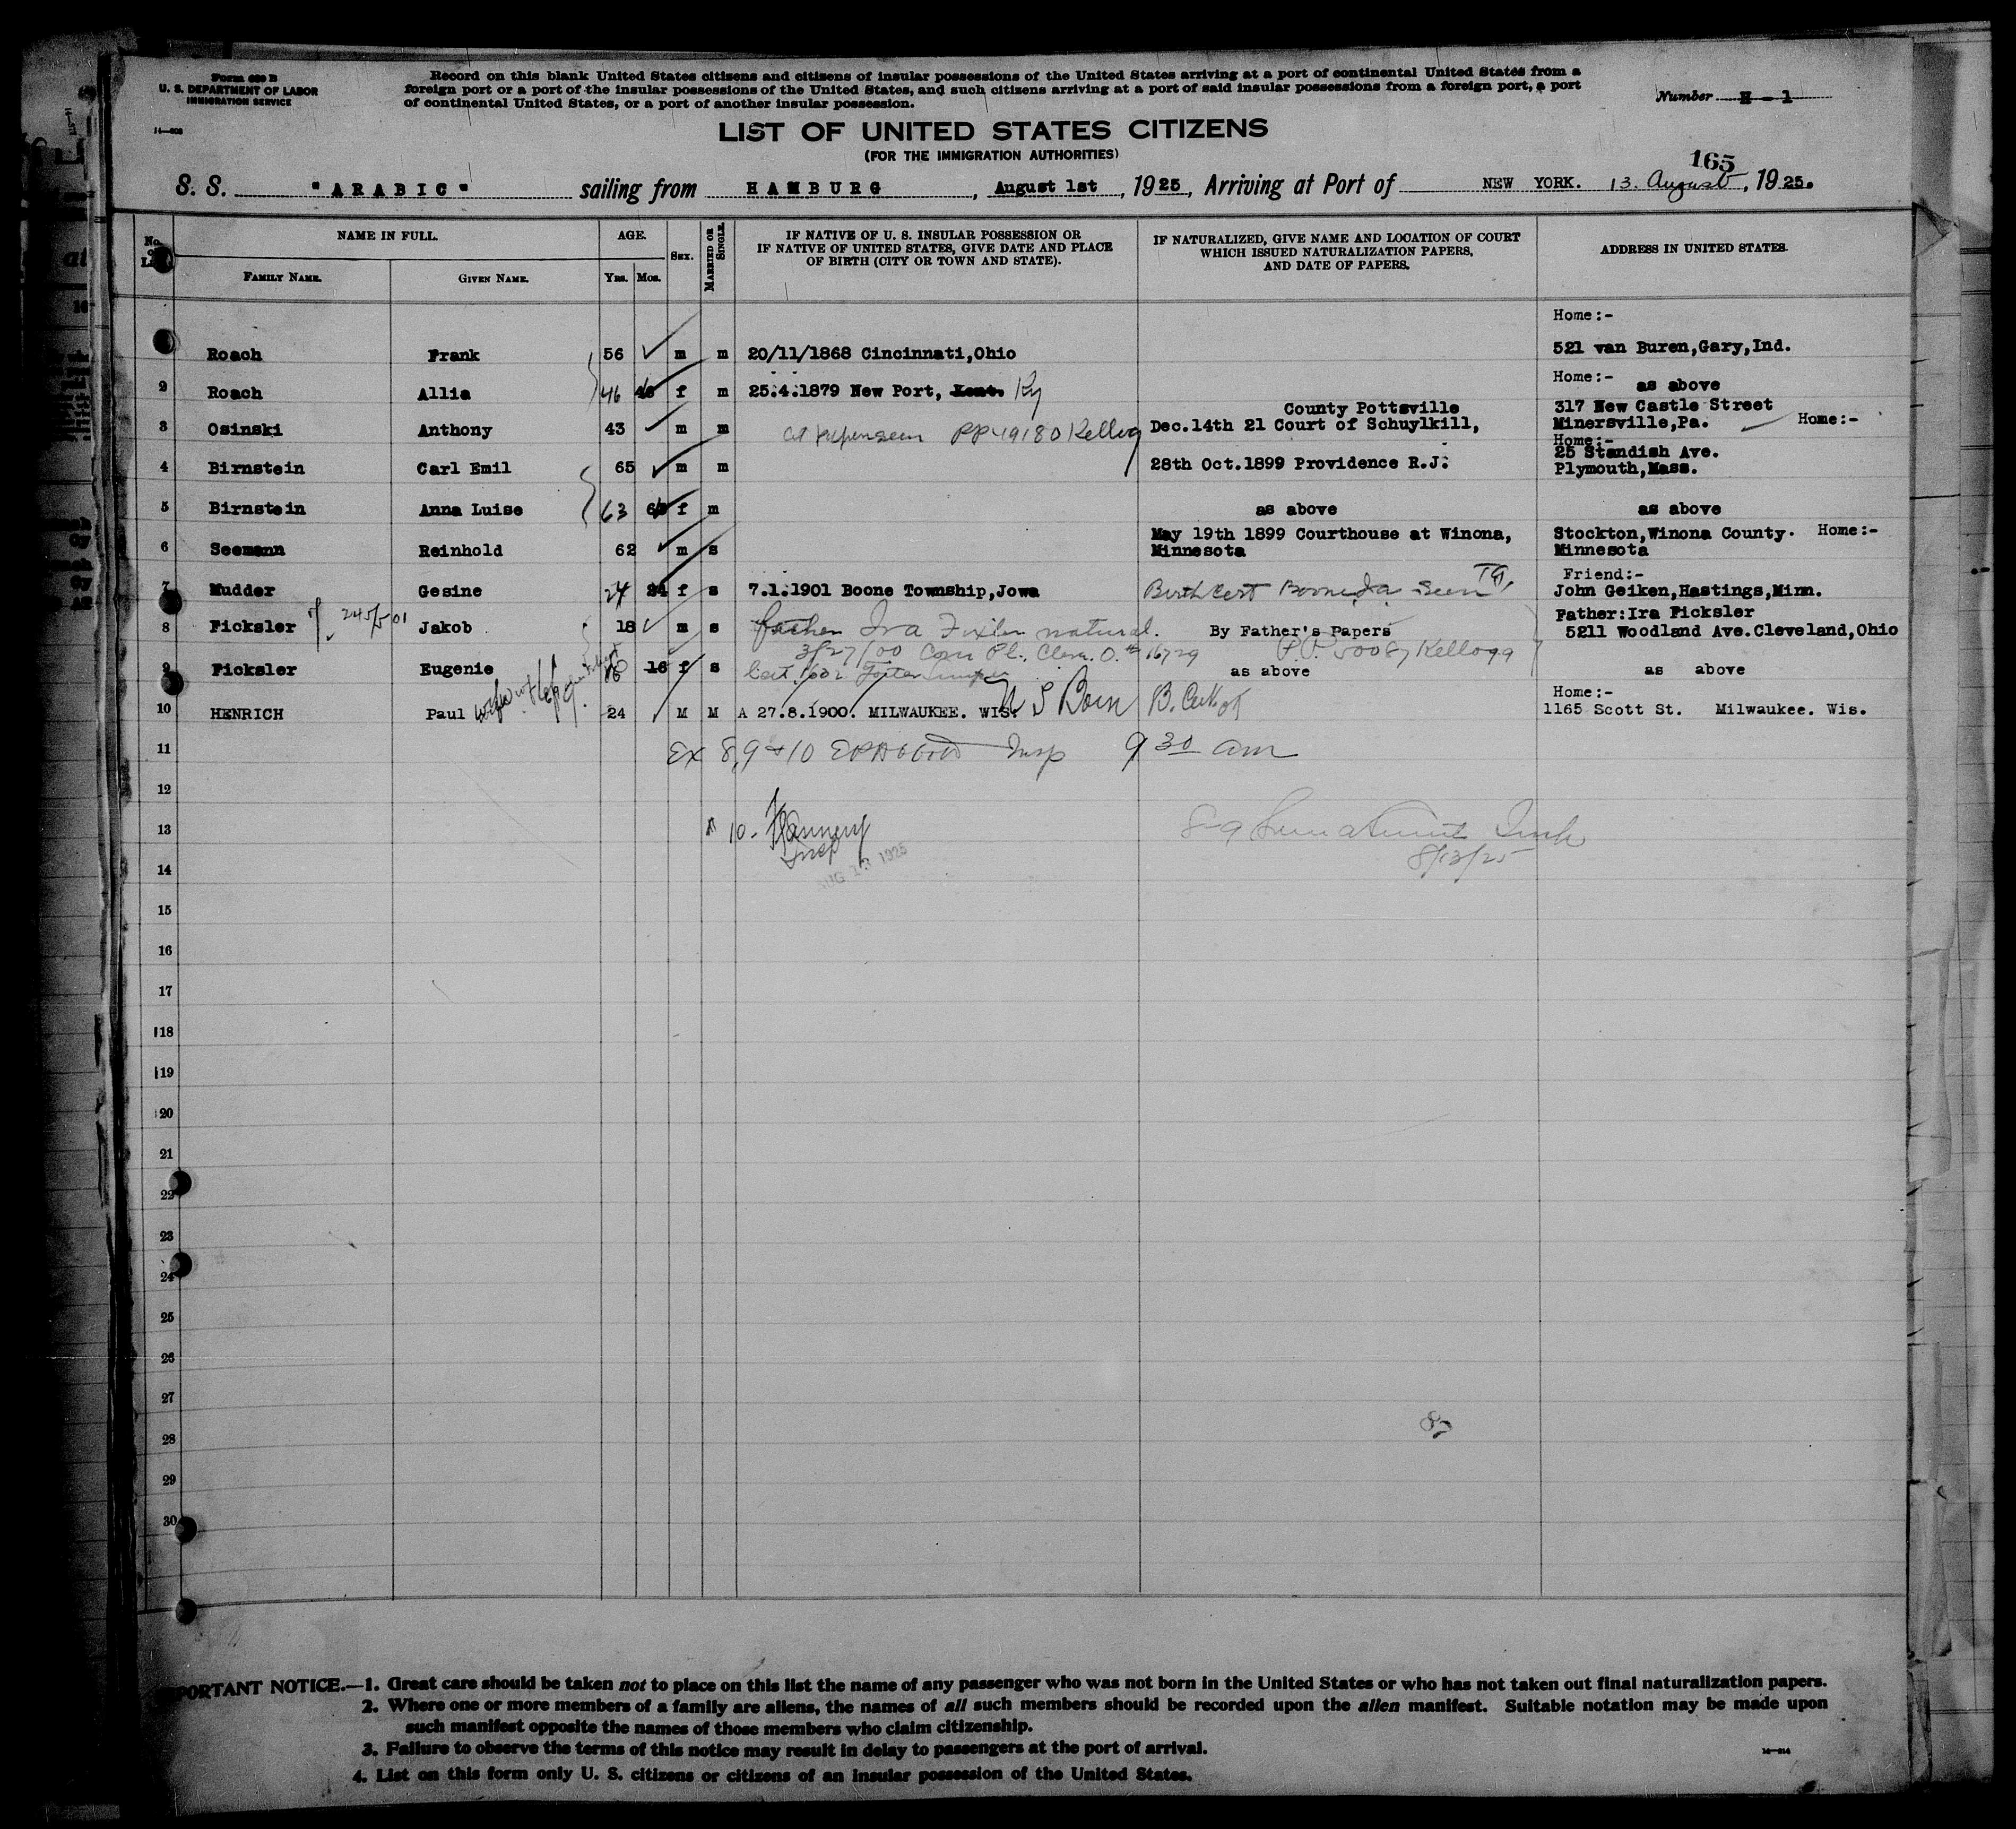 Form 630 B
U. S. DEPARTMENT OF LABOR
IMMIGRATION SERVICE
Record on this blank United States citizens and citizens of insular possessions of the United States arriving at a port of continental United States from a
foreign port or a port of the insular possessions of the United States, and such citizens arriving at a port of said insular possessions from a foreign port, a port
of continental United States, or a port of another insular possession.
Number H - 1
LIST OF UNITED STATES CITIZENS
(FOR THE IMMIGRATION AUTHORITIES)
165
S. S. "ARABIC" sailing from HAMBURG, August 1st, 1925, Arriving at Port of NEW YORK. 13. August, 1925.
No. on List
NAME IN FULL.
FAMILY NAME. GIVEN NAME.
AGE.
YRS. MOS.
SEX.
MARRIED OR SINGLE.
IF NATIVE OF U. S. INSULAR POSSESSION OR
IF NATIVE OF UNITED STATES, GIVE DATE AND PLACE
OF BIRTH (CITY OR TOWN AND STATE).
IF NATURALIZED, GIVE NAME AND LOCATION OF COURT
WHICH ISSUED NATURALIZATION PAPERS,
AND DATE OF PAPERS.
ADDRESS IN UNITED STATES.
Home:-
Roach Frank 56 m m 20/11/1868 Cincinnati,Ohio 521 van Buren,Gary,Ind.
Home:-
2 Roach Allia 46 f m 25.4.1879 New Port, Kent. Ky as above
3 Osinski Anthony 43 m m PP 49180 Kellog County Pottsville
Dec.14th 21 Court of Schuylkill, 317 New Castle Street
Minersville,Pa. Home:-
Home:-
4 Birnstein Carl Emil 65 m m 28th Oct.1899 Providence R.J. 25 Standish Ave.
Plymouth,Mass.
5 Birnstein Anna Luise 63 f m as above as above
6 Seemann Reinhold 62 m s May 19th 1899 Courthouse at Winona,
Minnesota Stockton,Winona County. Home:-
Minnesota
7 Mudder Gesine 24 24 f s 7.1.1901 Boone Township,Jowa Birth Cert Boone Ia Seen Friend:-
John Geiken,Hastings,Minn.
8 Ficksler Jakob 18 m s father Ira Fixler natural. By Father's Papers Father:Ira Ficksler
5211 Woodland Ave.Cleveland,Ohio
3/27/00 Com Pl. Clev. O. # 16729 P.P. 50087 Kellogg
9 Ficksler Eugenie 16 16 f s as above as above
Home:-
10 HENRICH Paul 24 M M A 27.8.1900. MILWAUKEE. WIS. U S Born 1165 Scott St. Milwaukee. Wis.
11 Ex 8, 9 & 10 Insp 9 30 am
12
13 10- Insp
AUG 13 1925
8/13/25
14
15
16
17
18
19
20
21
22
23
24
25
26
27
28
29
30
IMPORTANT NOTICE.—1. Great care should be taken not to place on this list the name of any passenger who was not born in the United States or who has not taken out final naturalization papers.
2. Where one or more members of a family are aliens, the names of all such members should be recorded upon the alien manifest. Suitable notation may be made upon
such manifest opposite the names of those members who claim citizenship.
3. Failure to observe the terms of this notice may result in delay to passengers at the port of arrival.
4. List on this form only U. S. citizens or citizens of an insular possession of the United States.